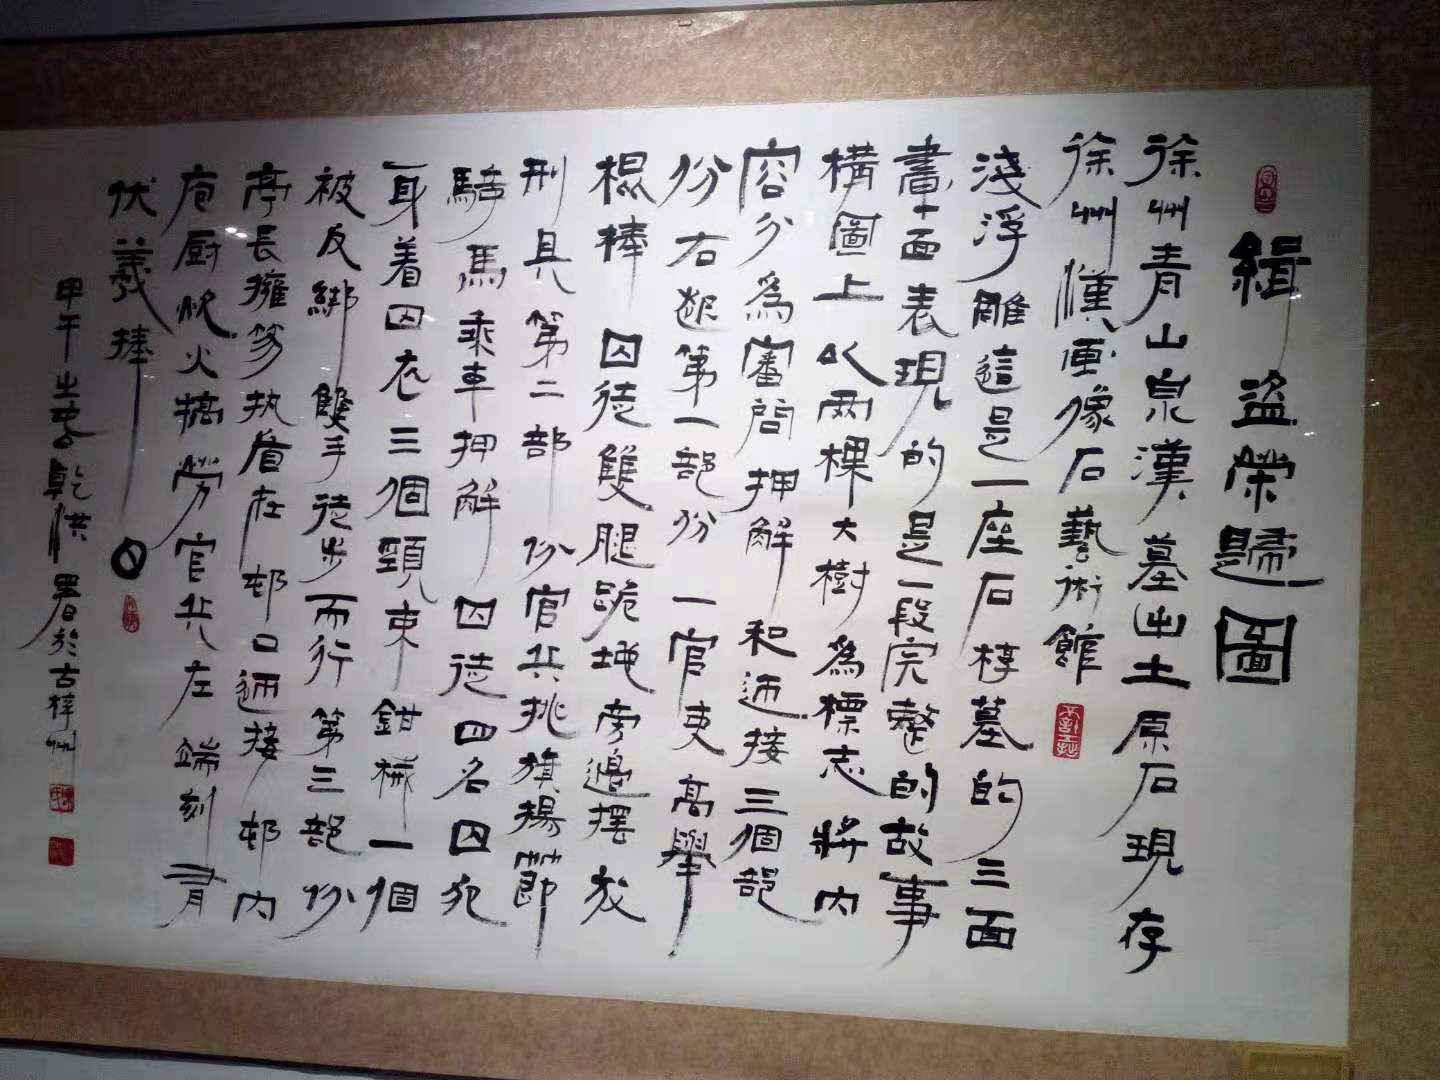 緝盜榮歸圖
徐州青山泉漢墓出土原石現存
徐州漢画像石藝術館
淺浮雕這是一座石椁墓的三面
畫面表現的是一段完整的故事
構圖上以两棵大樹為標志將内
容分為審問押解和迊接三個部
份右起第一部份一官吏高舉
棍棒囚徒雙腿跪地旁邊擺放
刑具第二部份官兵挑旗揚節
騎馬乘車押解囚徒四名囚犯
身着囚衣三個頸束鉗械一個
被反綁雙手徒步而行第三部份
亭長擁篲执盾在邨口迊接邨内
庖厨炊火犒勞官兵左端刻有
伏羲捧
甲午之春乾洪署於古梓州